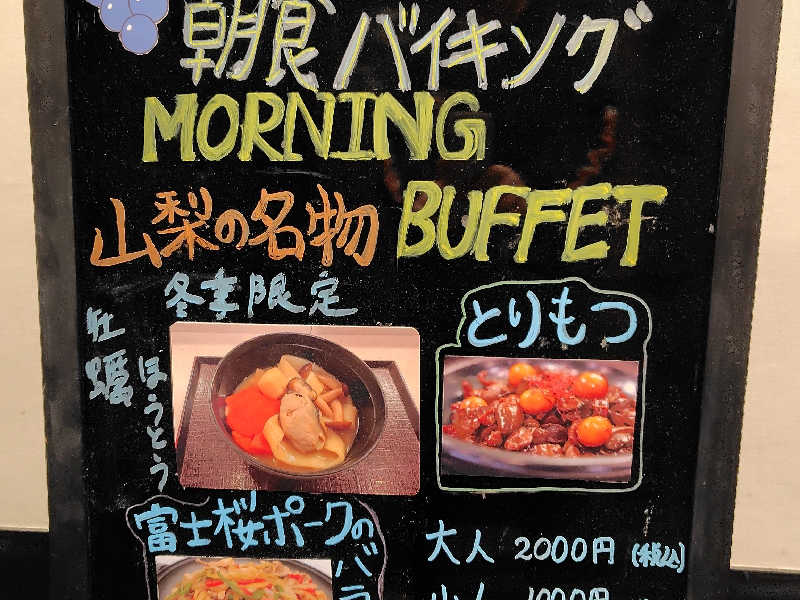 朝食バイキング
MORNING
山梨の名物 BUFFET
冬季限定
牡蠣
ほうとう
とりもつ
富士桜ポークの
バラ
大人 2000円 (税込)
小人 1000円